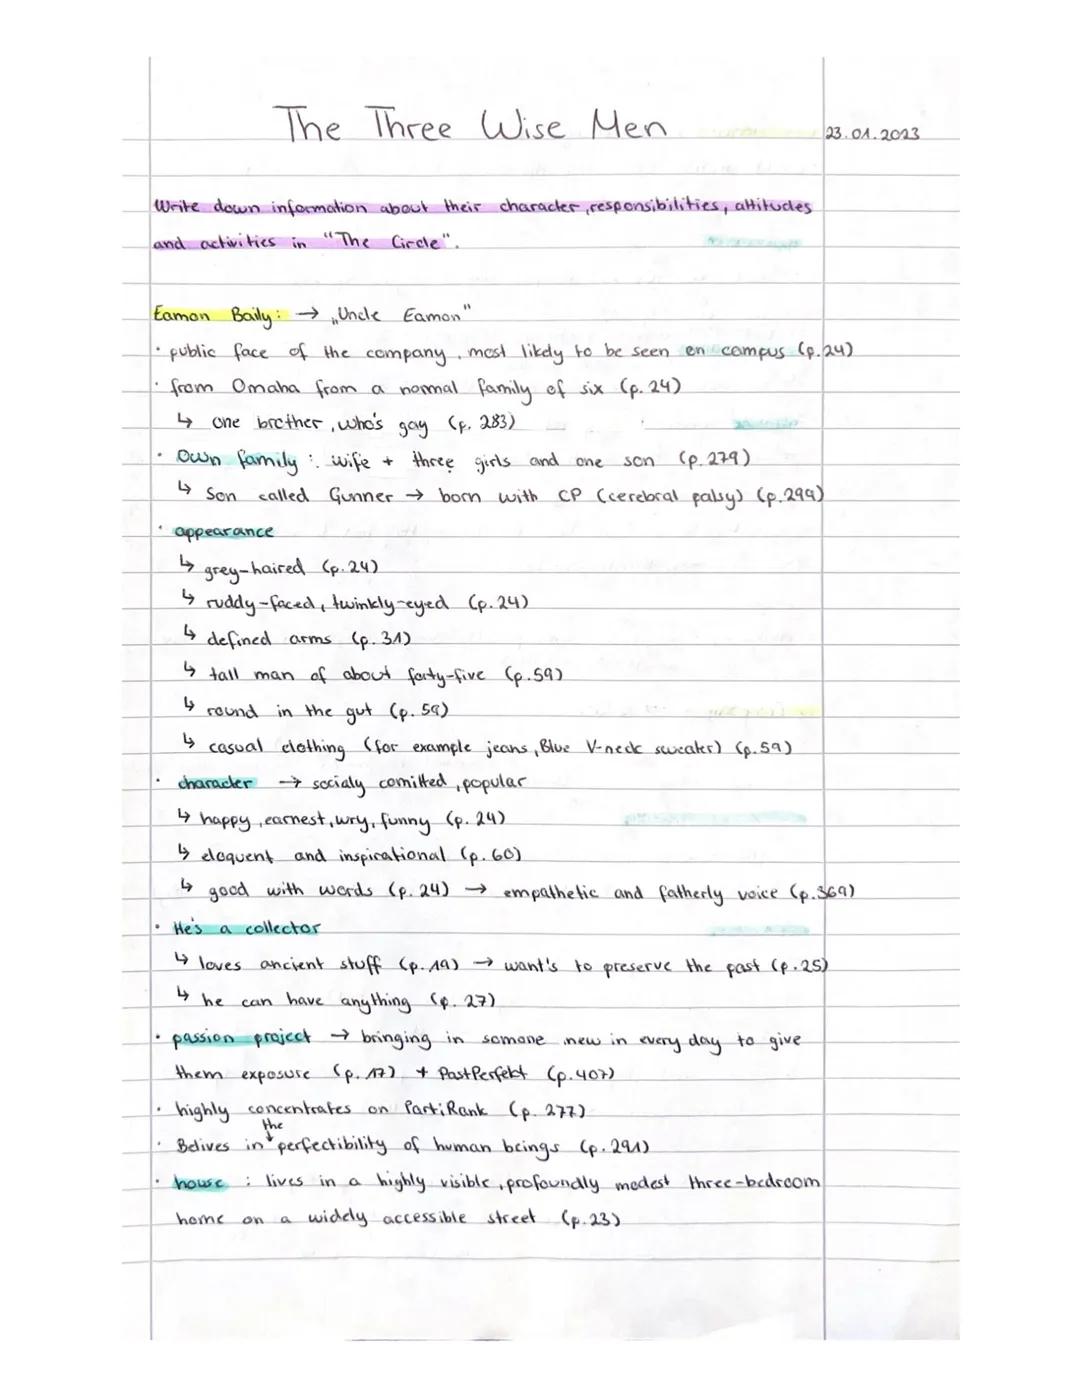 The Three Wise Men
23.01.2023
Write down information about their character, responsibilities, attitudes
and activities in "The Circle".
Eamon Baily: → „Uncle Eamon"
· public face of the company, most likely to be seen on campus (p.24)
· from Omaha from a normal family of six (p. 24)
↳ one brother, who's gay (p. 283)
· Own family: wife + three girls and one son (p. 279)
↳ Son called Gunner → born with CP (cerebral palsy) (p.299)
· appearance
↳ grey-haired (p. 24)
↳ ruddy-faced, twinkly-eyed (p. 24)
↳ defined arms (p. 31)
↳ tall man of about forty-five (p.59)
↳ round in the gut (p. 59)
↳ casual clothing (for example jeans, Blue V-neck sweater) (p.59)
· character → socialy comitted, popular
↳ happy, earnest, wry, funny (p. 24)
↳ eloquent and inspirational (p. 60)
↳ good with words (p. 24) → empathetic and fatherly voice (p.369)
· He's a collector
↳ loves ancient stuff (p. 19) → want's to preserve the past (p.25)
↳ he can have anything (p. 27)
· passion project → bringing in somone new in every day to give
them exposure (p. 17) + PastPerfekt (p.407)
· highly concentrates on PartiRank (p. 277)
the
· Belives in perfectibility of human beings (p. 291)
· house: lives in a highly visible, profoundly modest three-bedroom
home on a widely accessible street (p.23)